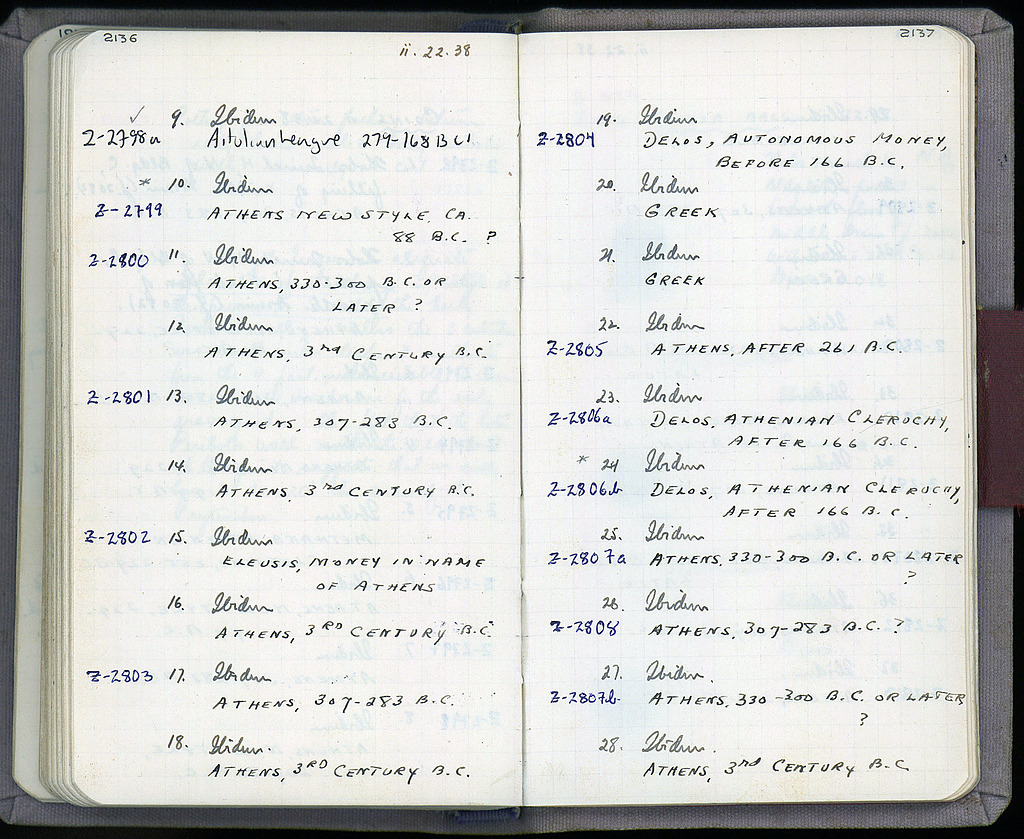 2136
ii. 22. 38
✓ 9. Ibidum
Z-2798a Aitolian League 279-168 B.C.
* 10. Ibidum
Z-2799 ATHENS NEW STYLE, CA.
88 B.C. ?
Z-2800 11. Ibidum
ATHENS, 330-300 B.C. OR
LATER ?
12. Ibidum
ATHENS, 3rd CENTURY B.C.
Z-2801 13. Ibidum
ATHENS, 307-283 B.C.
14. Ibidum
ATHENS, 3rd CENTURY B.C.
Z-2802 15. Ibidum
ELEUSIS, MONEY IN NAME
OF ATHENS
16. Ibidum
ATHENS, 3RD CENTURY B.C.
Z-2803 17. Ibidum
ATHENS, 307-283 B.C.
18. Ibidum.
ATHENS, 3RD CENTURY B.C.
2137
19. Ibidum
Z-2804 DELOS, AUTONOMOUS MONEY,
BEFORE 166 B.C.
20. Ibidum
GREEK
21. Ibidum
GREEK
22. Ibidum
Z-2805 ATHENS, AFTER 261 B.C.
23. Ibidum
Z-2806a DELOS, ATHENIAN CLERUCHY,
AFTER 166 B.C.
* 24 Ibidum
Z-2806b DELOS, ATHENIAN CLERUCHY,
AFTER 166 B.C.
25. Ibidum
Z-2807a ATHENS, 330-300 B.C. OR LATER
?
26. Ibidum
Z-2808 ATHENS, 307-283 B.C. ?
27. Ibidum.
Z-2807b ATHENS, 330-300 B.C. OR LATER
?
28. Ibidum.
ATHENS, 3rd CENTURY B.C